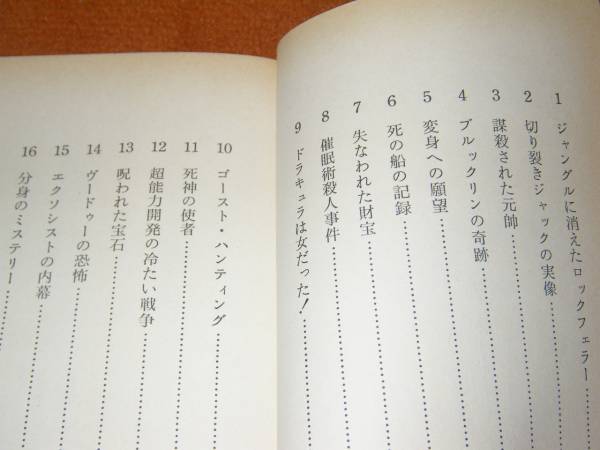 1 ジャングルに消えたロックフェラー
2 切り裂きジャックの実像
3 謀殺された元帥
4 ブルックリンの奇跡
5 変身への願望
6 死の船の記録
7 失なわれた財宝
8 催眠術殺人事件
9 ドラキュラは女だった!
10 ゴースト・ハンティング
11 死神の使者
12 超能力開発の冷たい戦争
13 呪われた宝石
14 ヴードゥーの恐怖
15 エクソシストの内幕
16 分身のミステリー